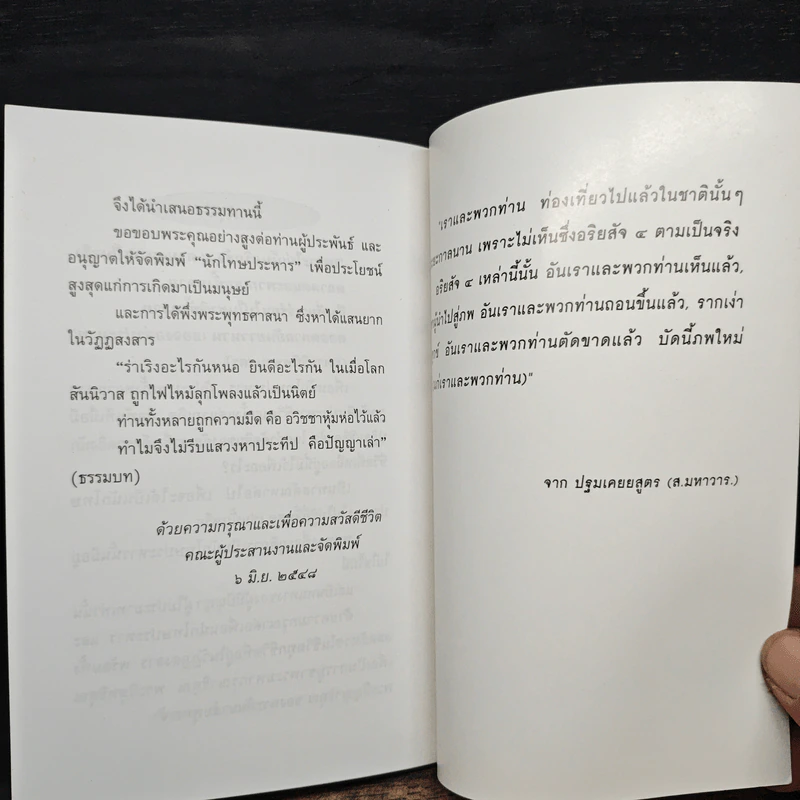 จึงได้นำเสนอธรรมทานนี้
ขอขอบพระคุณอย่างสูงต่อท่านผู้ประพันธ์ และ
อนุญาตให้จัดพิมพ์ “นักโทษประหาร” เพื่อประโยชน์
สูงสุดแก่การเกิดมาเป็นมนุษย์
และการได้พึ่งพระพุทธศาสนา ซึ่งหาได้แสนยาก
ในวัฏฏสงสาร
“ร่าเริงอะไรกันหนอ ยินดีอะไรกัน ในเมื่อโลก
สันนิวาส ถูกไฟไหม้ลุกโพลงแล้วเป็นนิตย์
ท่านทั้งหลายถูกความมืด คือ อวิชชาหุ้มห่อไว้แล้ว
ทำไมจึงไม่รีบแสวงหาประทีป คือปัญญาเล่า”
(ธรรมบท)
ด้วยความกรุณาและเพื่อความสวัสดีชีวิต
คณะผู้ประสานงานและจัดพิมพ์
๖ มิ.ย. ๒๕๔๘
"เราและพวกท่าน ท่องเที่ยวไปแล้วในชาตินั้นๆ
กาลนาน เพราะไม่เห็นซึ่งอริยสัจ ๔ ตามเป็นจริง
อริยสัจ ๔ เหล่านี้นั้น อันเราและพวกท่านเห็นแล้ว,
ผู้นำไปสู่ภพ อันเราและพวกท่านถอนขึ้นแล้ว, รากเง่า
อันเราและพวกท่านตัดขาดแล้ว บัดนี้ภพใหม่
แก่เราและพวกท่าน)"
จาก ปฐมเคยยสูตร (ส.มหาวาร.)